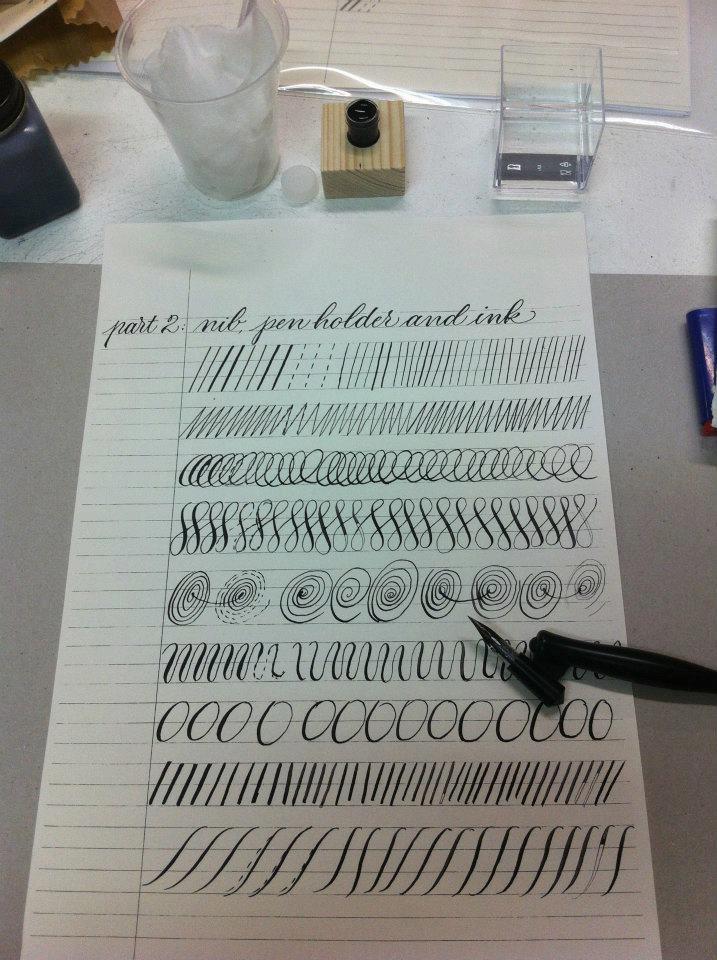 part 2: nib, pen holder and ink